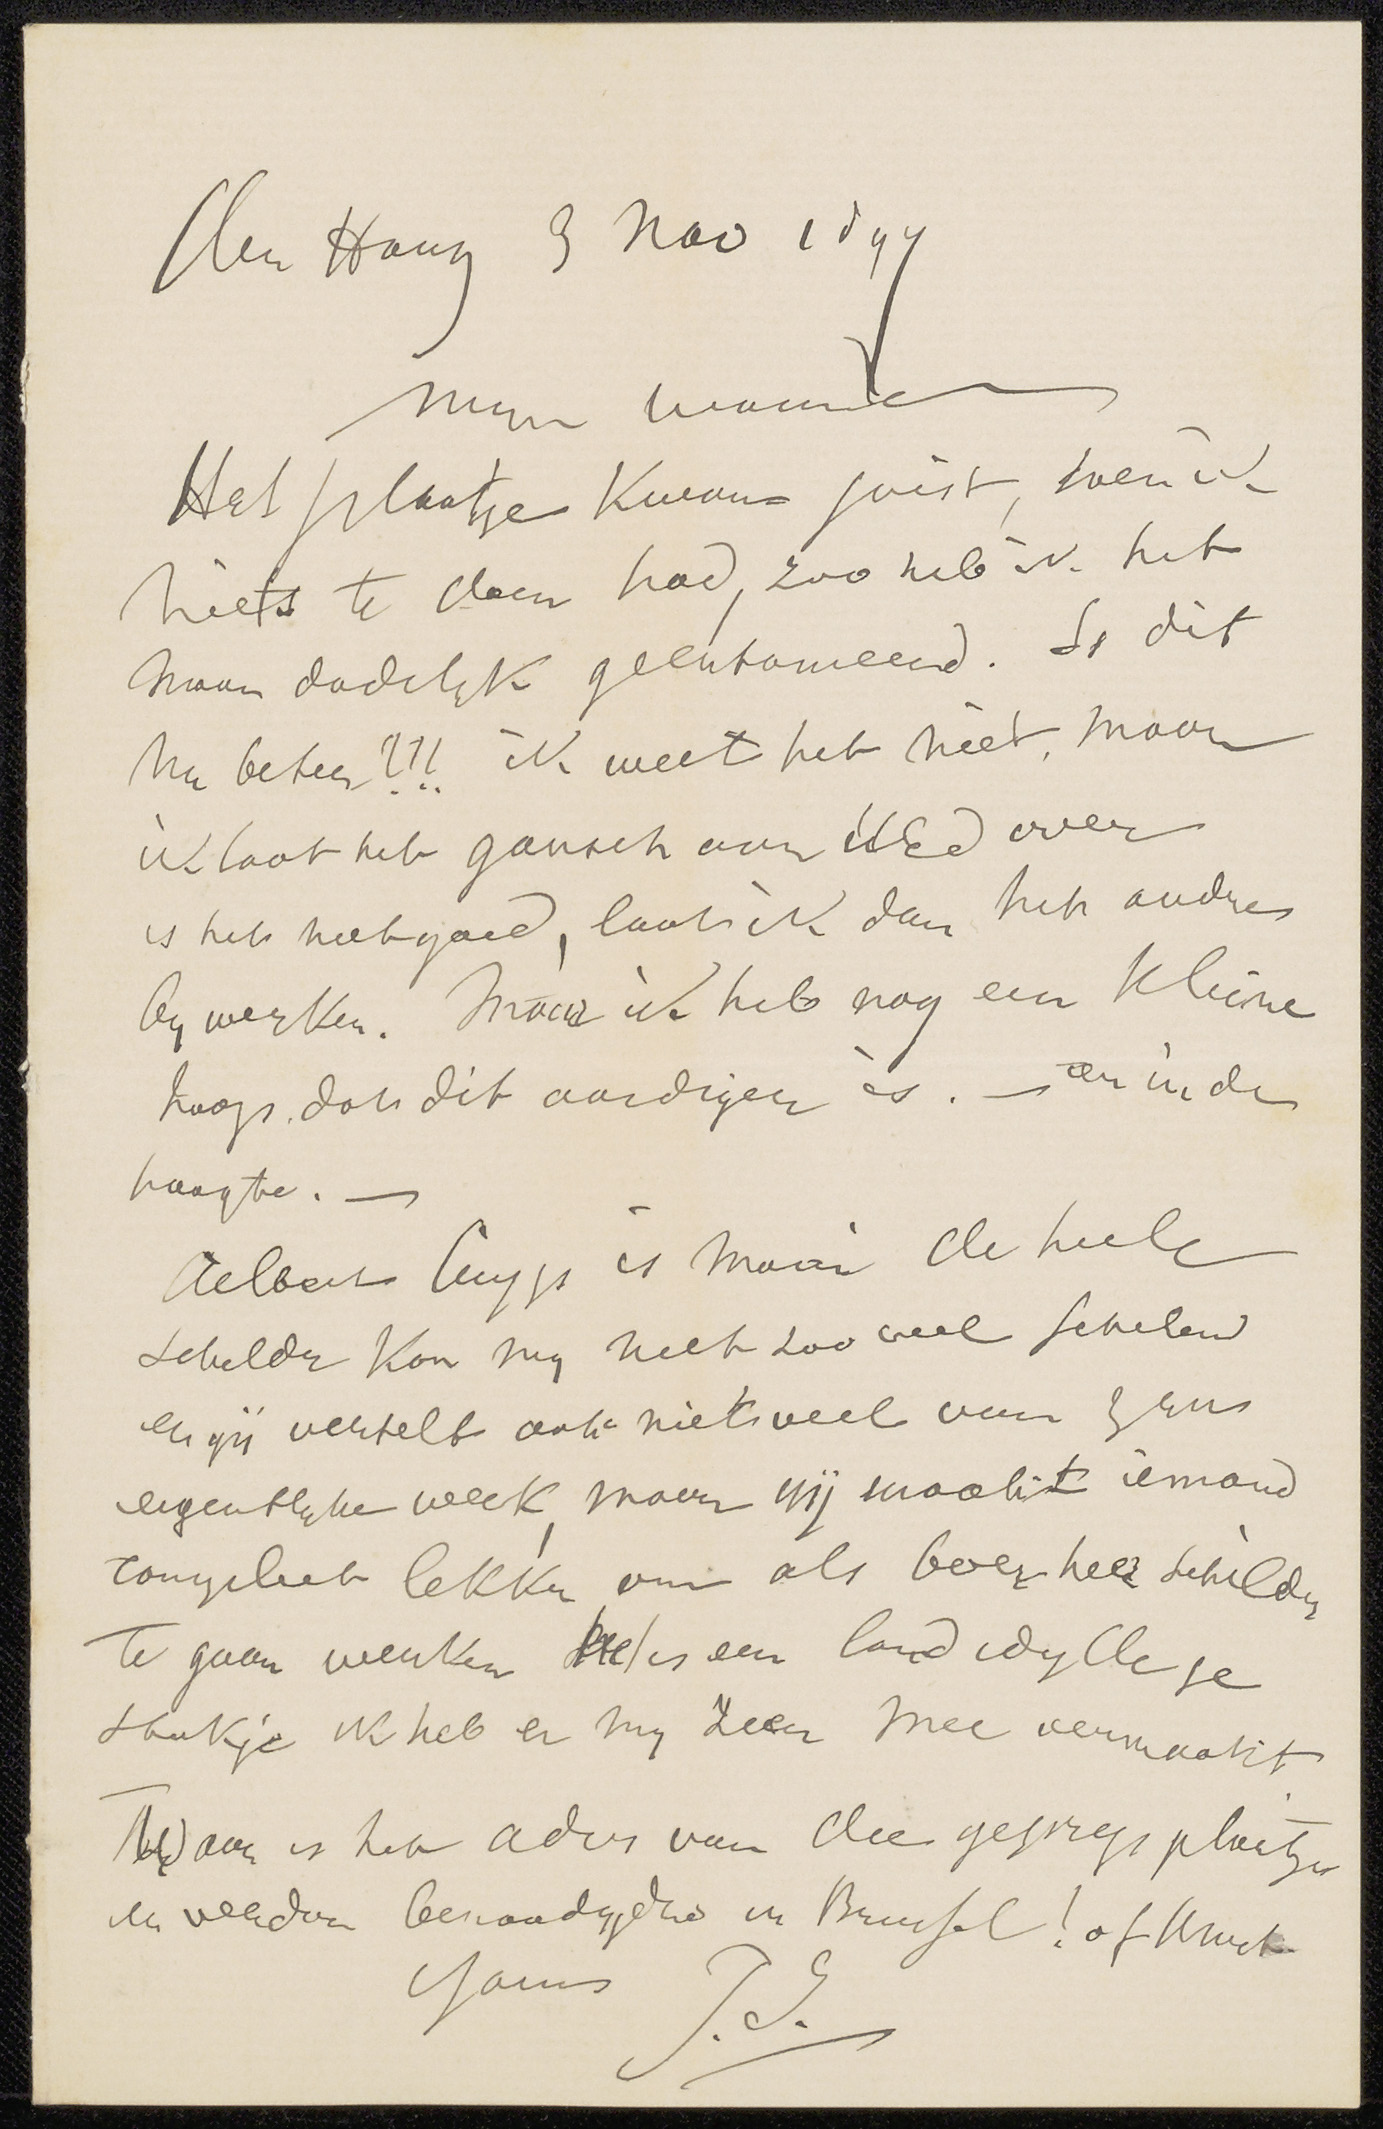 Den Haag 3 Nov 1899
Mijn waarde
Het plaatje kwam juist, toen ik
niets te doen had, zoo heb ik het
maar dadelyk geentameerd. Is dit
nu beter?!! ik weet het niet, maar
ik laat het gansch aan UEd over
is het niet goed, laat ik dan het andre
bywerken. Maar ik heb nog een kleine
hoop dat dit aardiger is. — en in de
hoogte. —
Aelbert Cuyp is mooi de heele
schilder kan my niet zoo veel schelen
en gij vertelt ook niets veel van zyn
eigentlyke werk, maar gij maakt iemand
compleet lekker om als boer heer schilder
te gaan werken Het is een land idylle je
stukje ik heb er my zeer mee vermaakt
Waar is het adres van die gegrepe plaatjes
en verdere benoodigdh in Brussel! of Kunst
Yours J. S.